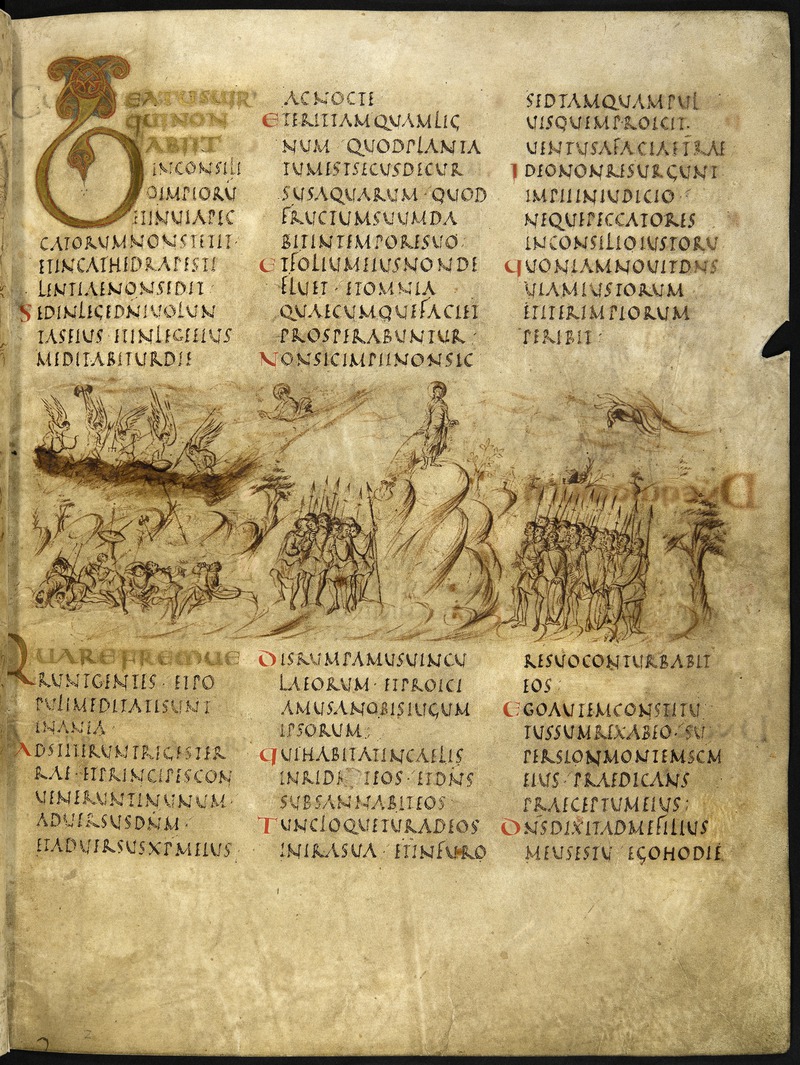 BEATUSUIR
QUINON
ABIIT
INCONSILI
OIMPIORU
ETINUIAPEC
CATORUMNONSTETIT·
ETINCATHEDRAPESTI
LENTIAENONSEDIT
SEDINLEGEDNIUOLUN
TASEIUS·ETINLEGEEIUS
MEDITABITURDIE
ACNOCTE
ETERITTAMQUAMLIG
NUM·QUODPLANTA
TUMESTSECUSDECUR
SUSAQUARUM·QUOD
FRUCTUMSUUMDA
BITINTEMPORESUO·
ETFOLIUMEIUSNONDE
FLUET·ETOMNIA
QUAECUMQUEFACIET
PROSPERABUNTUR·
NONSICIMPIINONSIC
SEDTAMQUAMPUL
UISQUEMPROICIT·
UENTUSAFACIETERRAE
IDEONONRESURGUNT
IMPIIINIUDICIO·
NEQUEPECCATORES
INCONSILIOIUSTORU
QUONIAMNOUITDNS
UIAMIUSTORUM
ETITERIMPIORUM
PERIBIT·
QUAREFREMUE
RUNTGENTES·ETPO
PULIMEDITATISUNT
INANIA·
ADSTITERUNTREGESTER
RAE·ETPRINCIPESCON
UENERUNTINUNUM·
ADUERSUSDNM·
ETADUERSUSXPMEIUS
DISRUMPAMUSUINCU
LAEORUM·ETPROICI
AMUSANOBISIUGUM
IPSORUM;
QUIHABITATINCAELIS
INRIDEBITEOS·ETDNS
SUBSANNABITEOS
TUNCLOQUETURADEOS
INIRASUA·ETINFURO
RESUOCONTURBABIT
EOS·
EGOAUTEMCONSTITU
TUSSUMREXABEO·SU
PERSIONMONTEMSCM
EIUS·PRAEDICANS
PRAECEPTUMEIUS;
DNSDIXITADMEFILIUS
MEUSESTU·EGOHODIE